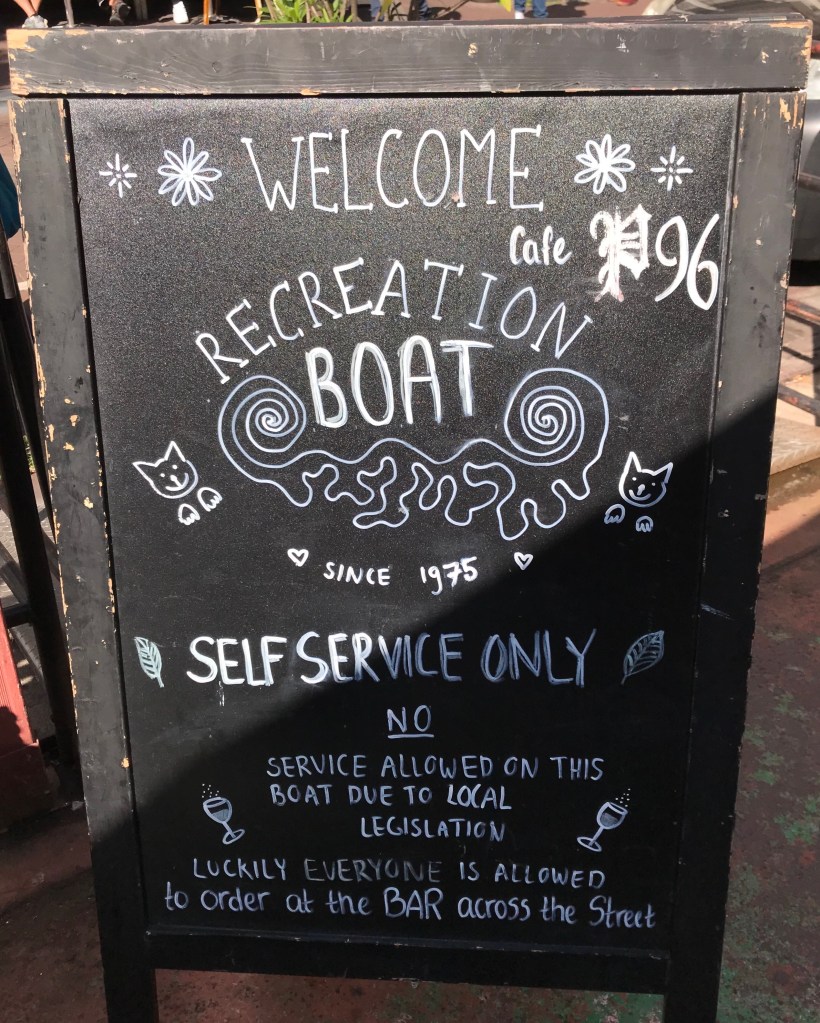 WELCOME
Cafe P96
RECREATION
BOAT
SINCE 1975
SELF SERVICE ONLY
NO
SERVICE ALLOWED ON THIS
BOAT DUE TO LOCAL
LEGISLATION
LUCKILY EVERYONE IS ALLOWED
to order at the BAR across the Street